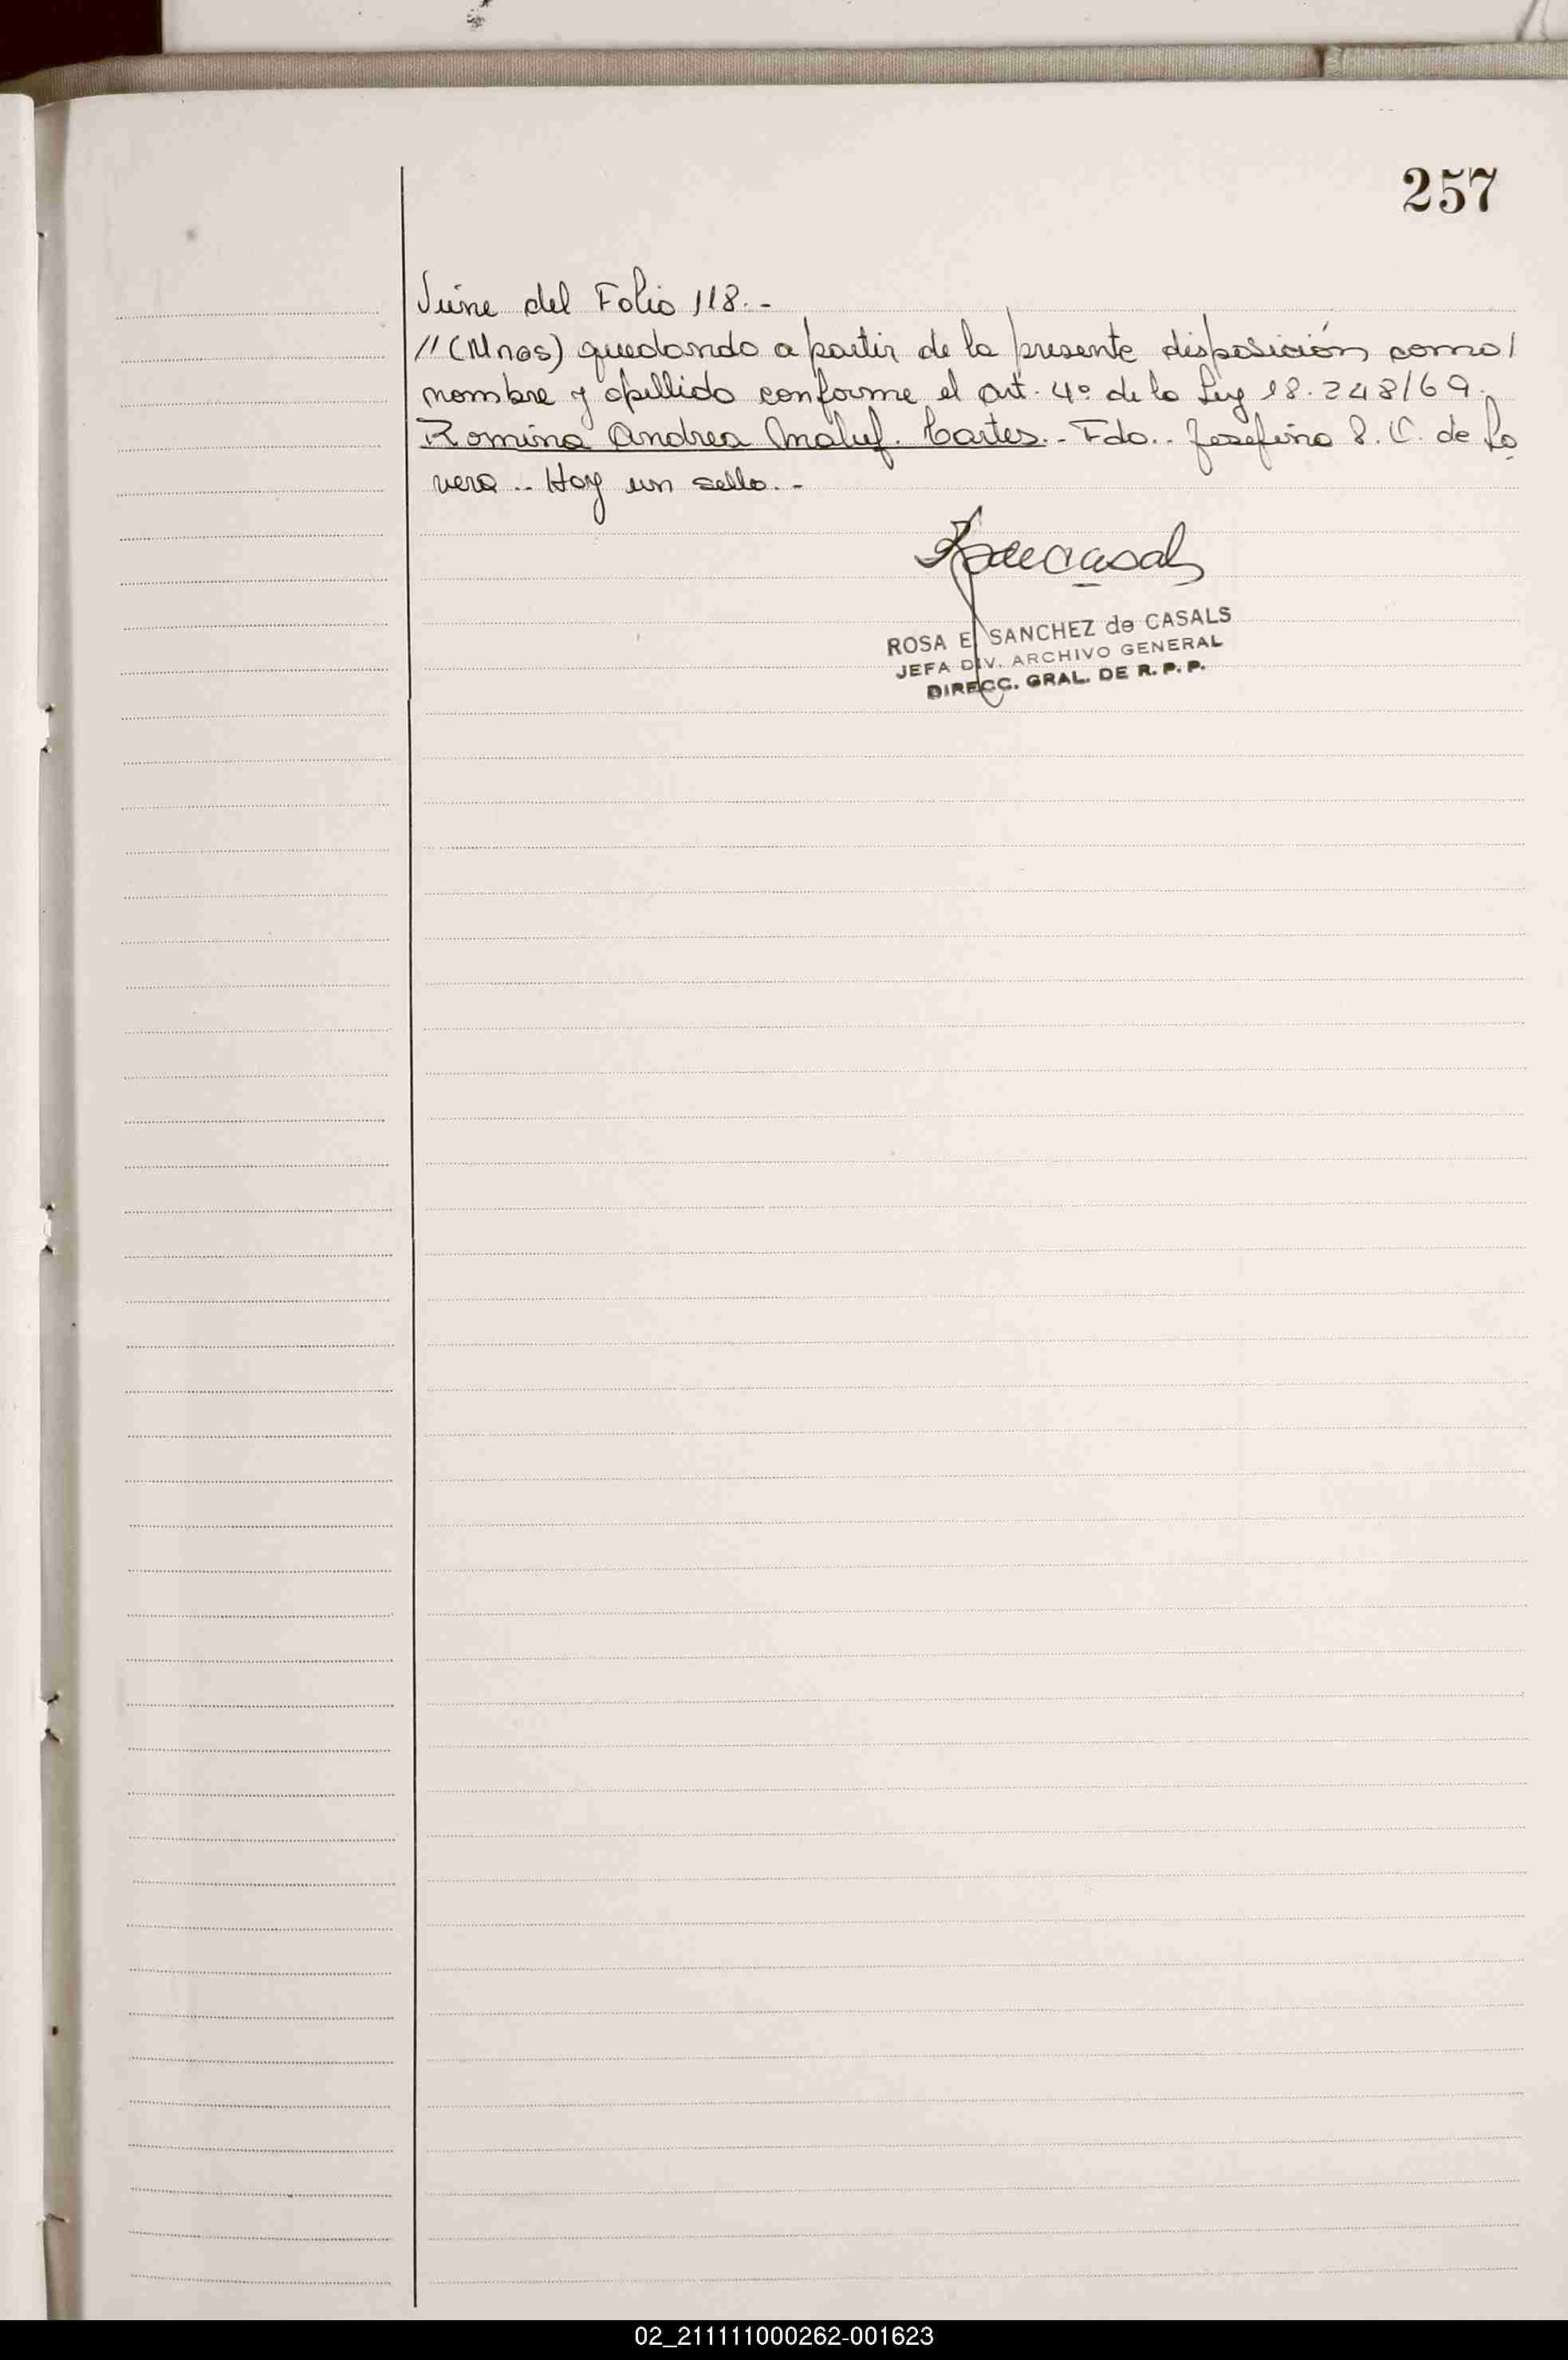 257
Viene del Folio 118.-
// (Mnas) quedando a partir de la presente disposición como/
nombre y apellido conforme el art. 4º de la Ley 18.248/69.
Romina Andrea Maluf. Cartes.- Fdo.. Josefina S. C. de Lo
vera.. Hay un sello.-
ROSA E. SANCHEZ de CASALS
JEFA DIV. ARCHIVO GENERAL
DIRECC. GRAL. DE R. P. P.
02_211111000262-001623